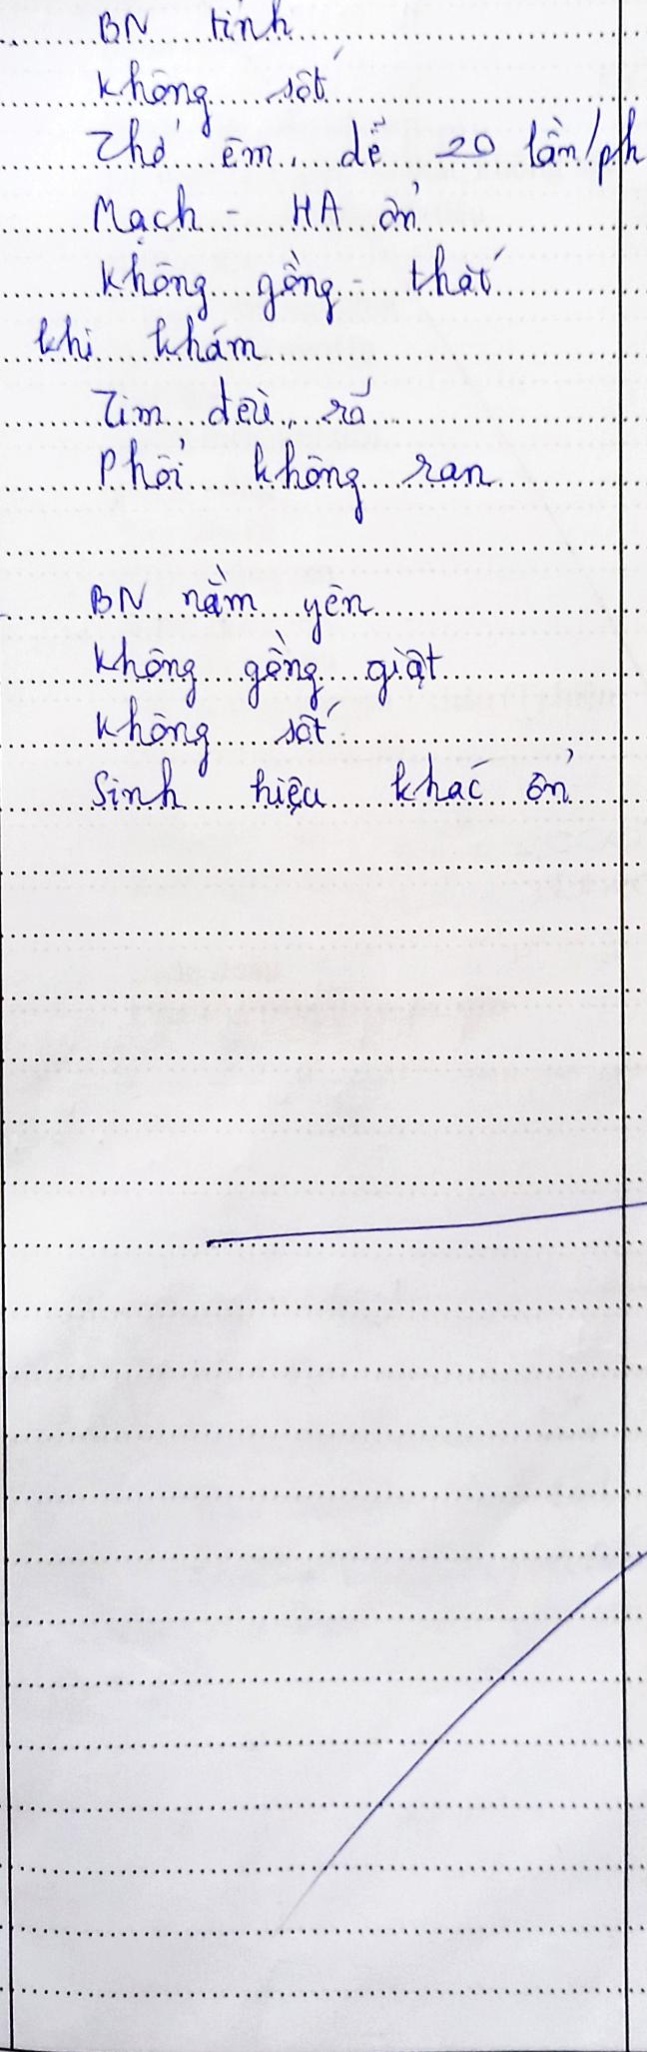 BN tỉnh
Không sốt
Thở êm, dễ 20 lần/ph
Mạch - HA ổn
Không gồng - thắt
khi khám
Tim đều, rõ
Phổi không ran
BN nằm yên
Không gồng giật
Không sốt
Sinh hiệu khác ổn